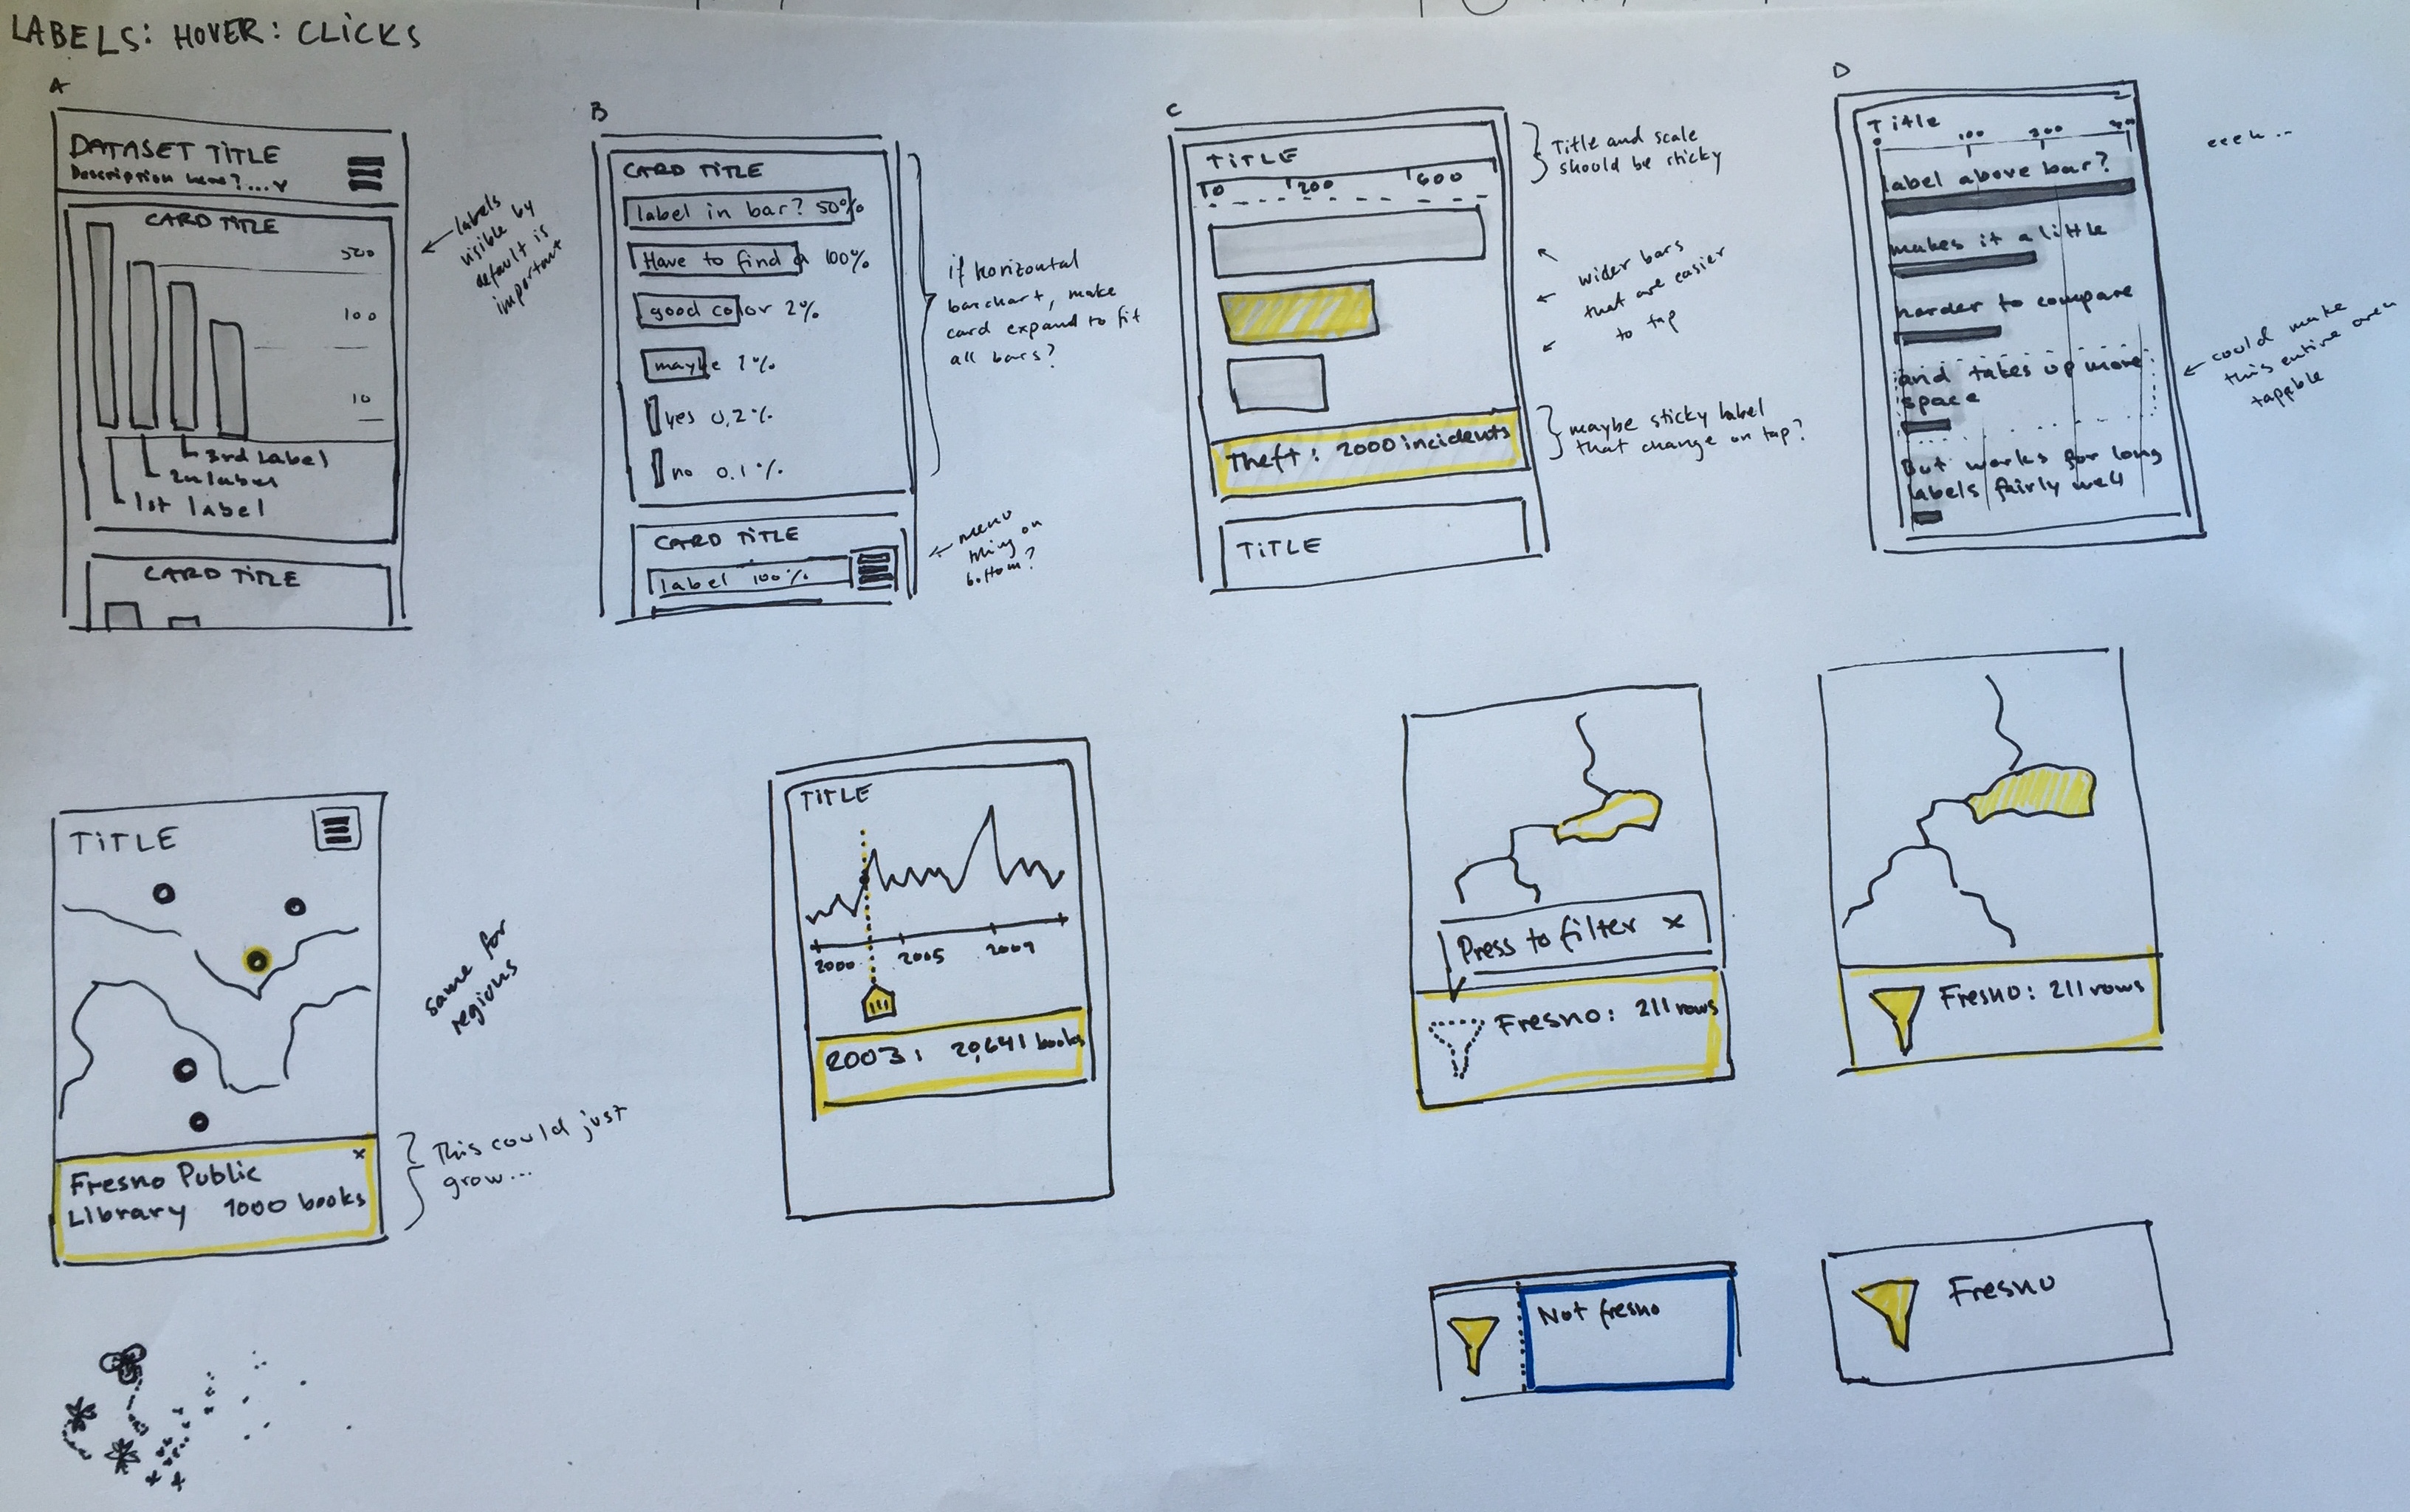 LABELS: HOVER: CLICKS
A
DATASET TITLE
Description here?...
CARD TITLE
500
100
10
3rd label
2n label
1st label
CARD TITLE
labels
visible by
default is
important
B
CARD TITLE
label in bar? 50%
Have to find a 100%
good color 2%
maybe 1%
yes 0,2%
no 0.1%
CARD TITLE
label 100%
if horizontal
barchart, make
card expand to fit
all bars?
menu
thing on
bottom?
C
TITLE
0 200 600
Theft: 2000 incidents
TITLE
Title and scale
should be sticky
wider bars
that are easier
to tap
maybe sticky label
that change on tap?
D
Title
0 100 200
label above bar?
makes it a little
harder to compare
and takes up more
space
But works for long
labels fairly well
eeeh..
could make
this entire area
tappable
TITLE
Fresno Public x
Library 1000 books
same for
regions
This could just
grow...
TITLE
2000 2005 2009
2003: 20,641 books
Press to filter x
Fresno: 211 rows
Fresno: 211 rows
Not fresno
Fresno